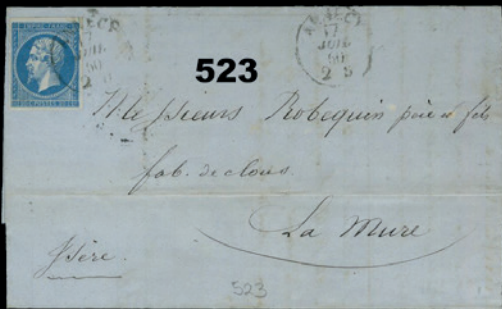 ANNECY
17
JUIL
60
2 S
523
Messieurs Robequin père et fils
fab. de clous
La Mure
Isère.
523